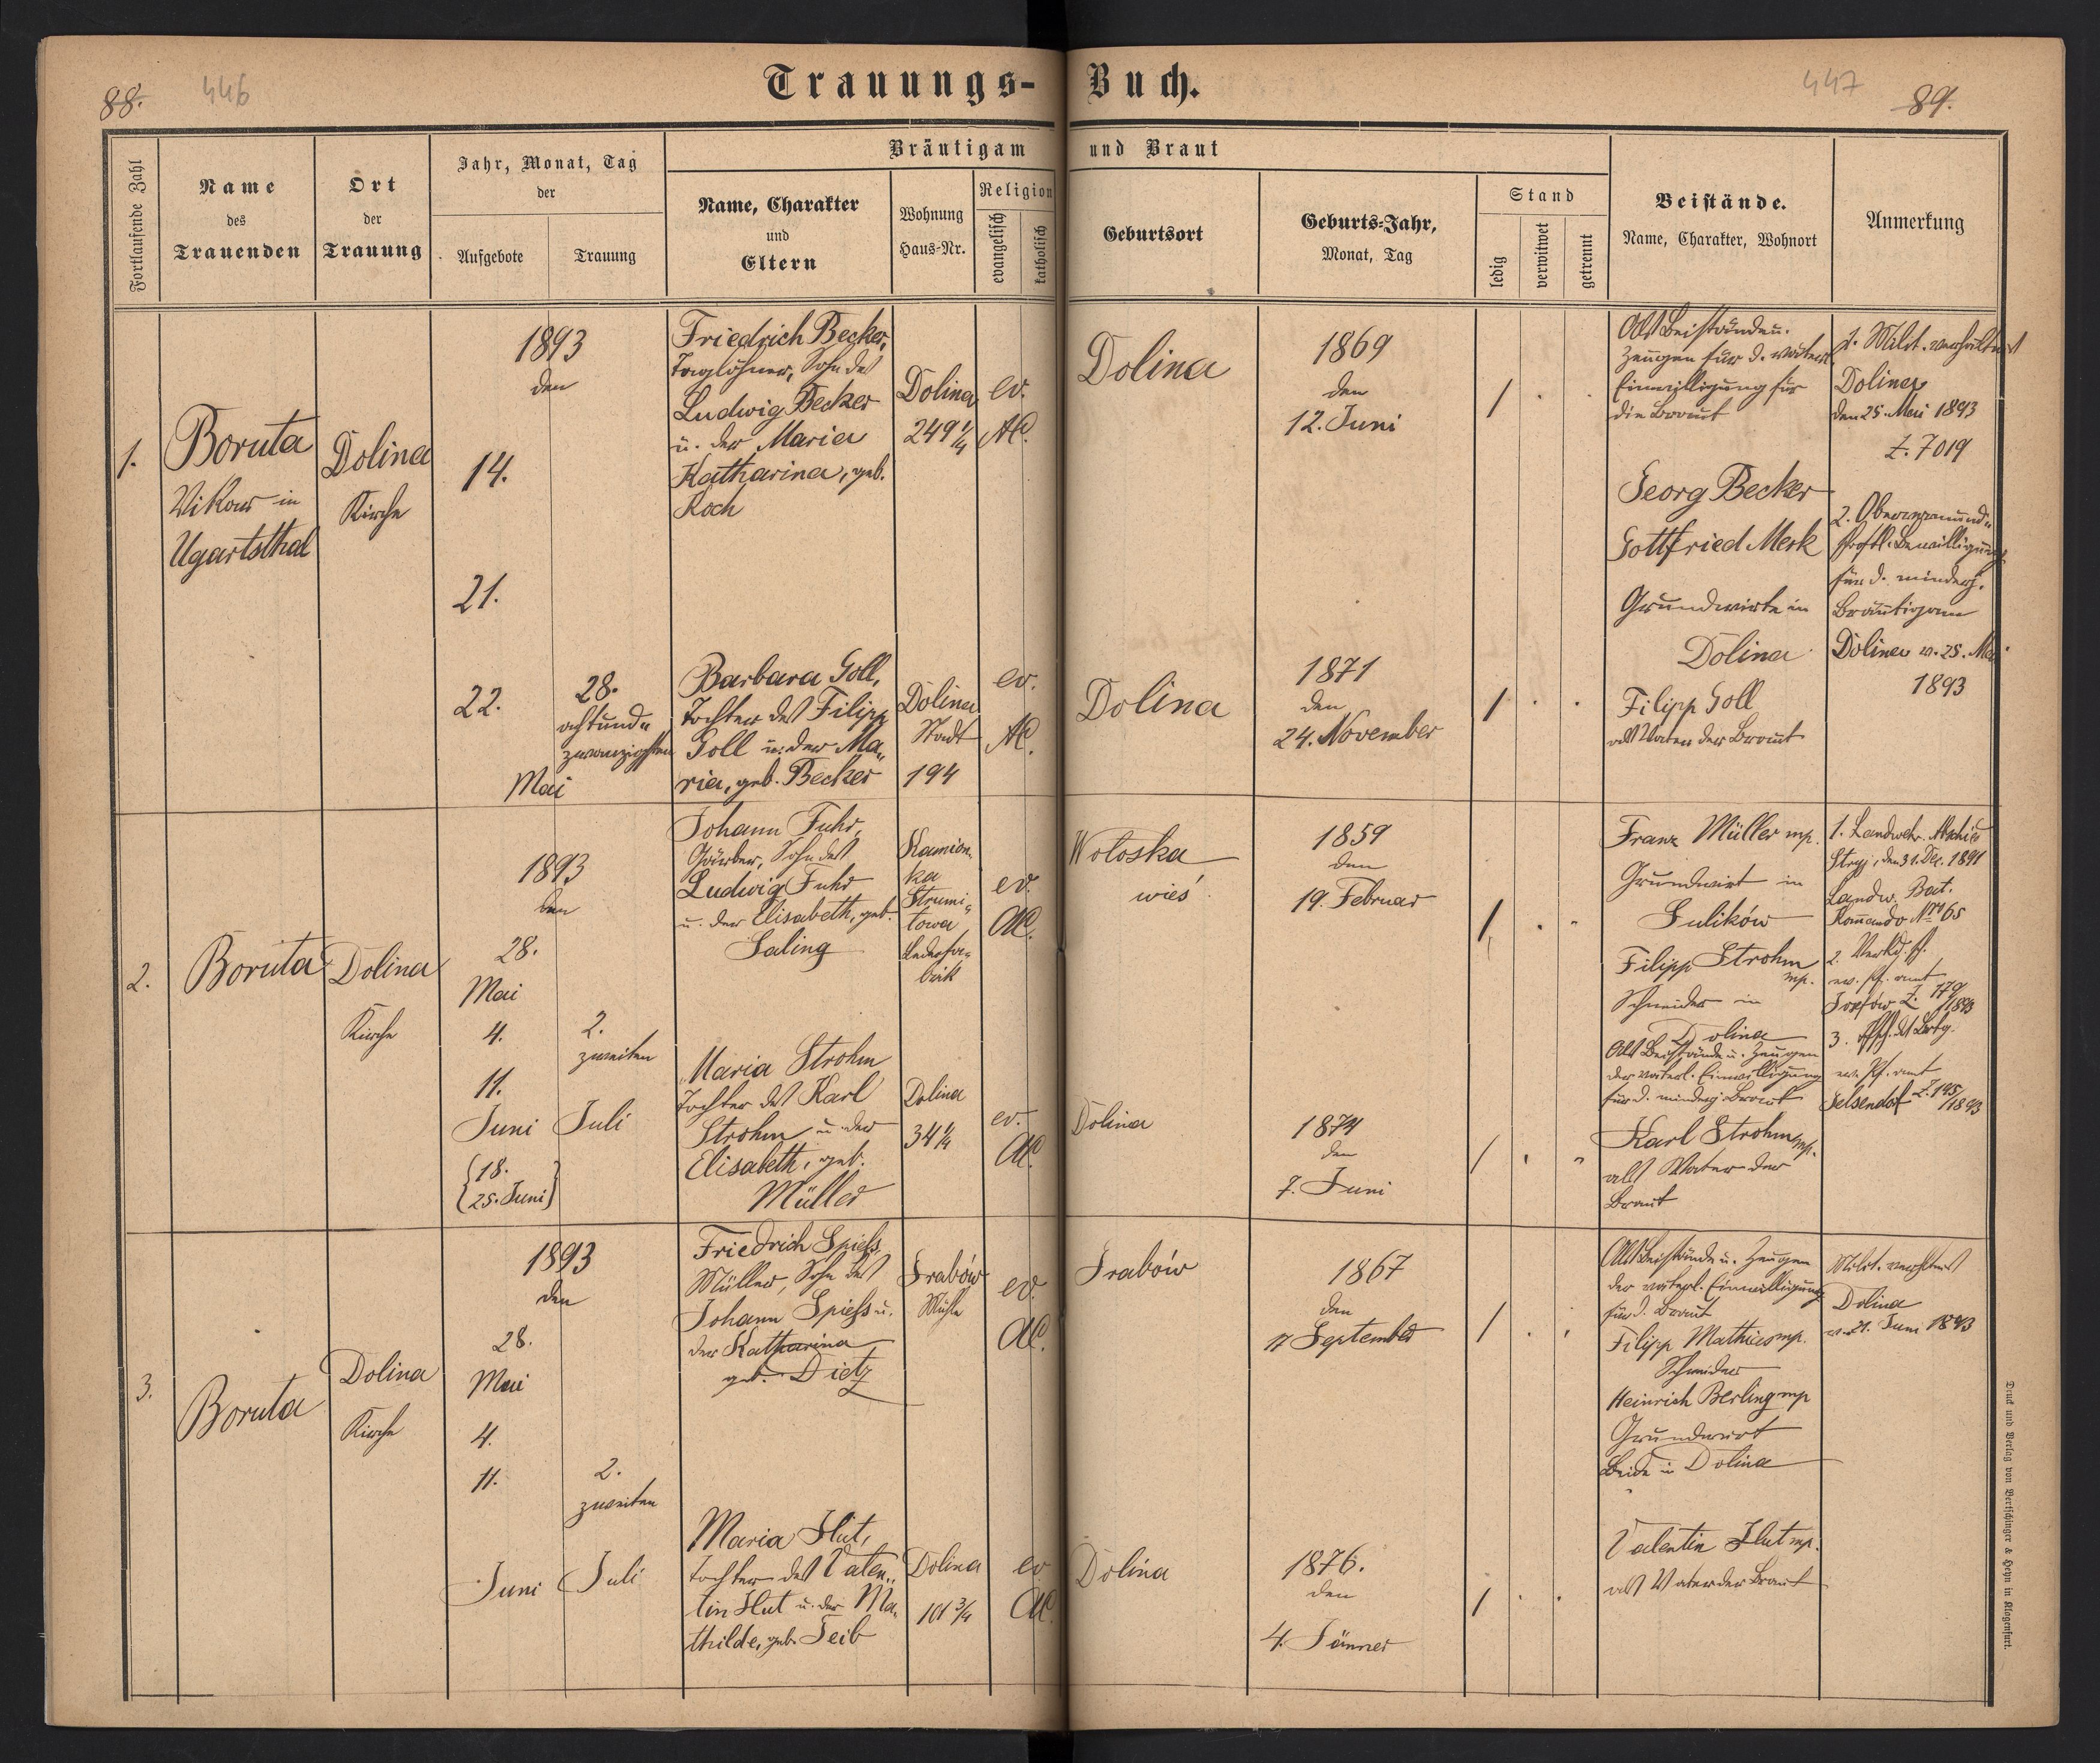 Trauungs-Buch.
88.
446
447
89.
Fortlaufende Zahl
Name
des
Trauenden
Ort
der
Trauung
Jahr, Monat, Tag
der
Aufgebote
Trauung
Bräutigam und Braut
Name, Charakter
und
Eltern
Wohnung
Haus-Nr.
Religion
evangelisch
katholisch
Geburtsort
Geburts-Jahr,
Monat, Tag
Stand
ledig
verwitwet
getrennt
Beistände.
Name, Charakter, Wohnort
Anmerkung
1.
Boruta
Vikar in
Ugartsthal
Dolina
Kirche
1893
den
14.
21.
22.
28.
achtund„
zwanzigsten
Mai
Friedrich Becker,
Taglöhner, Sohn des
Ludwig Becker
u. der Maria
Katharina, geb.
Koch
Dolina
249 1/4
ev.
AC.
Dolina
1869
den
12. Juni
/
Als Beistände u.
Zeugen für d. väterl.
Einwilligung für
die Braut
Georg Becker
Gottfried Merk
Grundwirte in
Dolina
1. Milit. verhältnis
Dolina
den 25. Mai 1893
Z. 7019
2. Obervormund„
schftl. Bewilligung
für d. minderj.
Bräutigam
Dolina v. 25. Mai
1893
Barbara Goll,
Tochter des Filipp
Goll u. der Ma„
ria, geb. Becker
Dolina
Stadt
194
ev.
AC.
Dolina
1871
den
24. November
/
Filipp Goll
als Vater der Braut
2.
Boruta
Dolina
Kirche
1893
den
28.
Mai
4.
11.
Juni
{18.
25. Juni}
2.
zweiten
Juli
Johann Fuhr,
Gärber, Sohn des
Ludwig Fuhr
u. der Elisabeth, geb.
Saling
Kamion„
ka
Strumi„
towa
Lederfa„
brik
ev.
AC.
Wotoska
wieś
1859
den
19. Februar
/
Franz Müller mp.
Grundwirt in
Sulików
Filipp Strohm
mp.
Schneider in
Dolina
Als Beistände u. Zeugen
der väterl. Einwilligung
für d. minderj. Braut
1. Landwehr. Abschied
Stryj, den 31. Dez. 1891
Landw. Bat.
Komando No 65
2.
ev. Pf. amt
Z. 179/1893
3.
ev. Pf. amt
Gelsendorf Z. 145/1893
Maria Strohm
Tochter des Karl
Strohm u. der
Elisabeth, geb.
Müller
Dolina
34 1/4
ev.
AC.
Dolina
1874
den
7. Juni
/
Karl Strohm mp.
als Vater der
Braut
3.
Boruta
Dolina
Kirche
1893
den
28.
Mai
4.
11.
Juni
2.
zweiten
Juli
Friedrich Spieß,
Müller, Sohn des
Johann Spieß u.
der Katharina
geb. Dietz
Grabów
Mühle
ev.
AC.
Grabów
1867
den
17 September
/
Als Beistände u. Zeugen
der väterl. Einwilligung
für d. Braut
Filipp Mathias mp.
Schneider
Heinrich Berling mp
Grundwirt
Beide in Dolina
Milit. verhltnis
Dolina
v. 21. Juni 1893
Maria Hut,
Tochter des Valen„
tin Hut u. der Ma„
thilde, geb. Seib
Dolina
101 3/4
ev
AC.
Dolina
1876.
den
4. Jänner
/
Valentin Hut mp.
als Vater der Braut
Druck und Verlag von Bertschinger & Heyn in Klagenfurt.